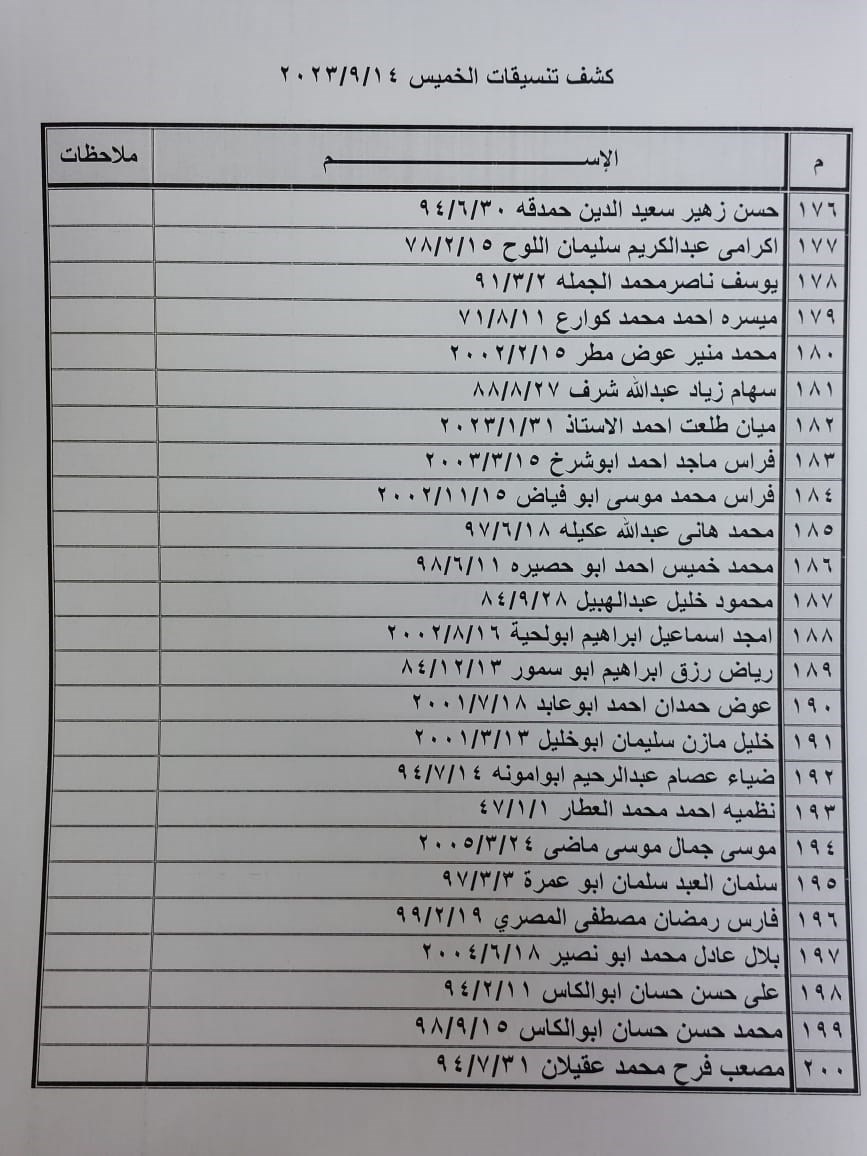 كشف تنسيقات الخميس ٢٠٢٣/٩/١٤
م الإســـــــــــم ملاحظات
١٧٦ حسن زهير سعيد الدين حمدقه ٩٤/٦/٣٠
١٧٧ اكرامى عبدالكريم سليمان اللوح ٧٨/٢/١٥
١٧٨ يوسف ناصرمحمد الجمله ٩١/٣/٢
١٧٩ ميسره احمد محمد كوارع ٧١/٨/١١
١٨٠ محمد منير عوض مطر ٢٠٠٢/٢/١٥
١٨١ سهام زياد عبدالله شرف ٨٨/٨/٢٧
١٨٢ ميان طلعت احمد الاستاذ ٢٠٢٣/١/٣١
١٨٣ فراس ماجد احمد ابوشرخ ٢٠٠٣/٣/١٥
١٨٤ فراس محمد موسى ابو فياض ٢٠٠٢/١١/١٥
١٨٥ محمد هانى عبدالله عكيله ٩٧/٦/١٨
١٨٦ محمد خميس احمد ابو حصيره ٩٨/٦/١١
١٨٧ محمود خليل عبدالهبيل ٨٤/٩/٢٨
١٨٨ امجد اسماعيل ابراهيم ابولحية ٢٠٠٢/٨/١٦
١٨٩ رياض رزق ابراهيم ابو سمور ٨٤/١٢/١٣
١٩٠ عوض حمدان احمد ابوعابد ٢٠٠١/٧/١٨
١٩١ خليل مازن سليمان ابوخليل ٢٠٠١/٣/١٣
١٩٢ ضياء عصام عبدالرحيم ابوامونه ٩٤/٧/١٤
١٩٣ نظميه احمد محمد العطار ٤٧/١/١
١٩٤ موسى جمال موسى ماضى ٢٠٠٥/٣/٢٤
١٩٥ سلمان العبد سلمان ابو عمرة ٩٧/٣/٣
١٩٦ فارس رمضان مصطفى المصري ٩٩/٢/١٩
١٩٧ بلال عادل محمد ابو نصير ٢٠٠٤/٦/١٨
١٩٨ على حسن حسان ابوالكاس ٩٤/٢/١١
١٩٩ محمد حسن حسان ابوالكاس ٩٨/٩/١٥
٢٠٠ مصعب فرح محمد عقيلان ٩٤/٧/٣١